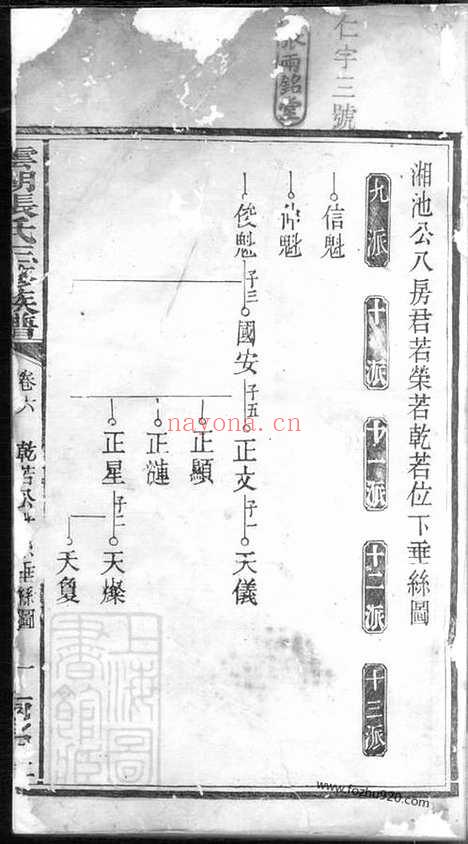 仁字三號
張雨銘堂
湘池公八房君若榮若乾若位下垂絲圖
九派
十派
十一派
十二派
十三派
信魁
魁
俊魁
子三
國安
子五
正文
子一
天儀
正顯
正漣
正星
子二
天燦
天夐
雲湖張氏三修族譜
卷六
乾若公
垂絲圖
一
上海圖書館藏
nayona.cn
www.fozhu920.com